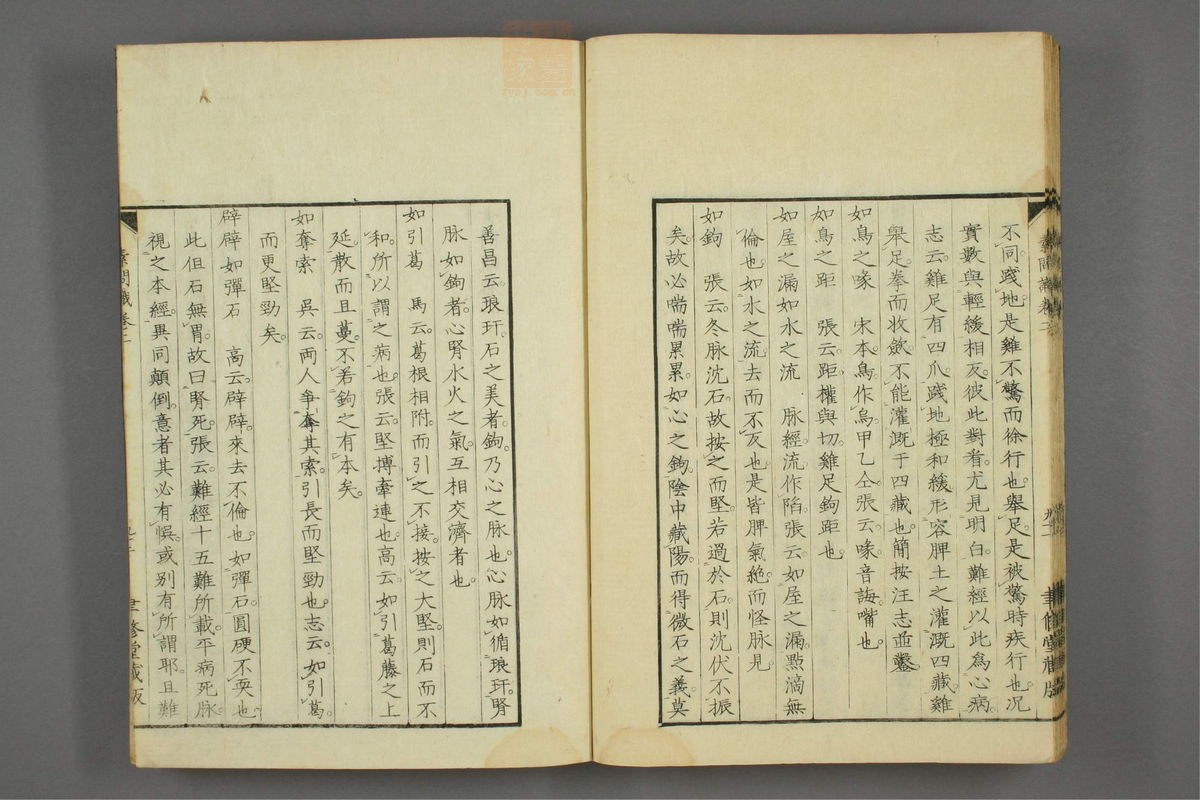 不同。踐地。是雞不驚而徐行也。舉足。是被驚時疾行也。況
實數與輕緩相反。彼此對看。尤見明白。難經以此爲心病。
志云。雞足有四爪。踐地極和緩。形容脾土之灌漑四藏。雞
舉足拳而收斂。不能灌漑于四藏也。簡按汪志並鑿
如鳥之喙　宋本鳥作烏。甲乙仝。張云。喙。音誨。嘴也。
如鳥之距　張云。距。權與切。雞足鉤距也
如屋之漏如水之流　脉經流作陷。張云。如屋之漏。點滴無
倫也。如水之流。去而不反也。是皆脾氣絶而怪脉見
如鉤　張云。冬脉沈石。故按之而堅。若過於石。則沈伏不振
矣。故必喘喘累累。如心之鉤。陰中藏陽。而得微石之義。莫
善昌云。琅玕。石之美者。鉤乃心之脉也。心脉如循琅玕。腎
脉如鉤者。心腎水火之氣。互相交濟者也。
如引葛　馬云。葛根相附。而引之不接。按之大堅。則石而不
和。所以謂之病也。張云。堅搏牽連也。高云。如引葛藤之上
延。散而且蔓。不若鉤之有本矣。
如奪索　吳云。兩人爭奪其索。引長而堅勁也。志云。如引葛
而更堅勁矣。
辟辟如彈石　高云。辟辟。來去不倫也。如彈石。圓硬不耎也。
此但石無胃。故曰腎死。張云。難經十五難所載。平病死脉。
視之本經。異同顛倒。意者其必有悞。或别有所謂耶。且難
素問識卷二
聿修堂藏版